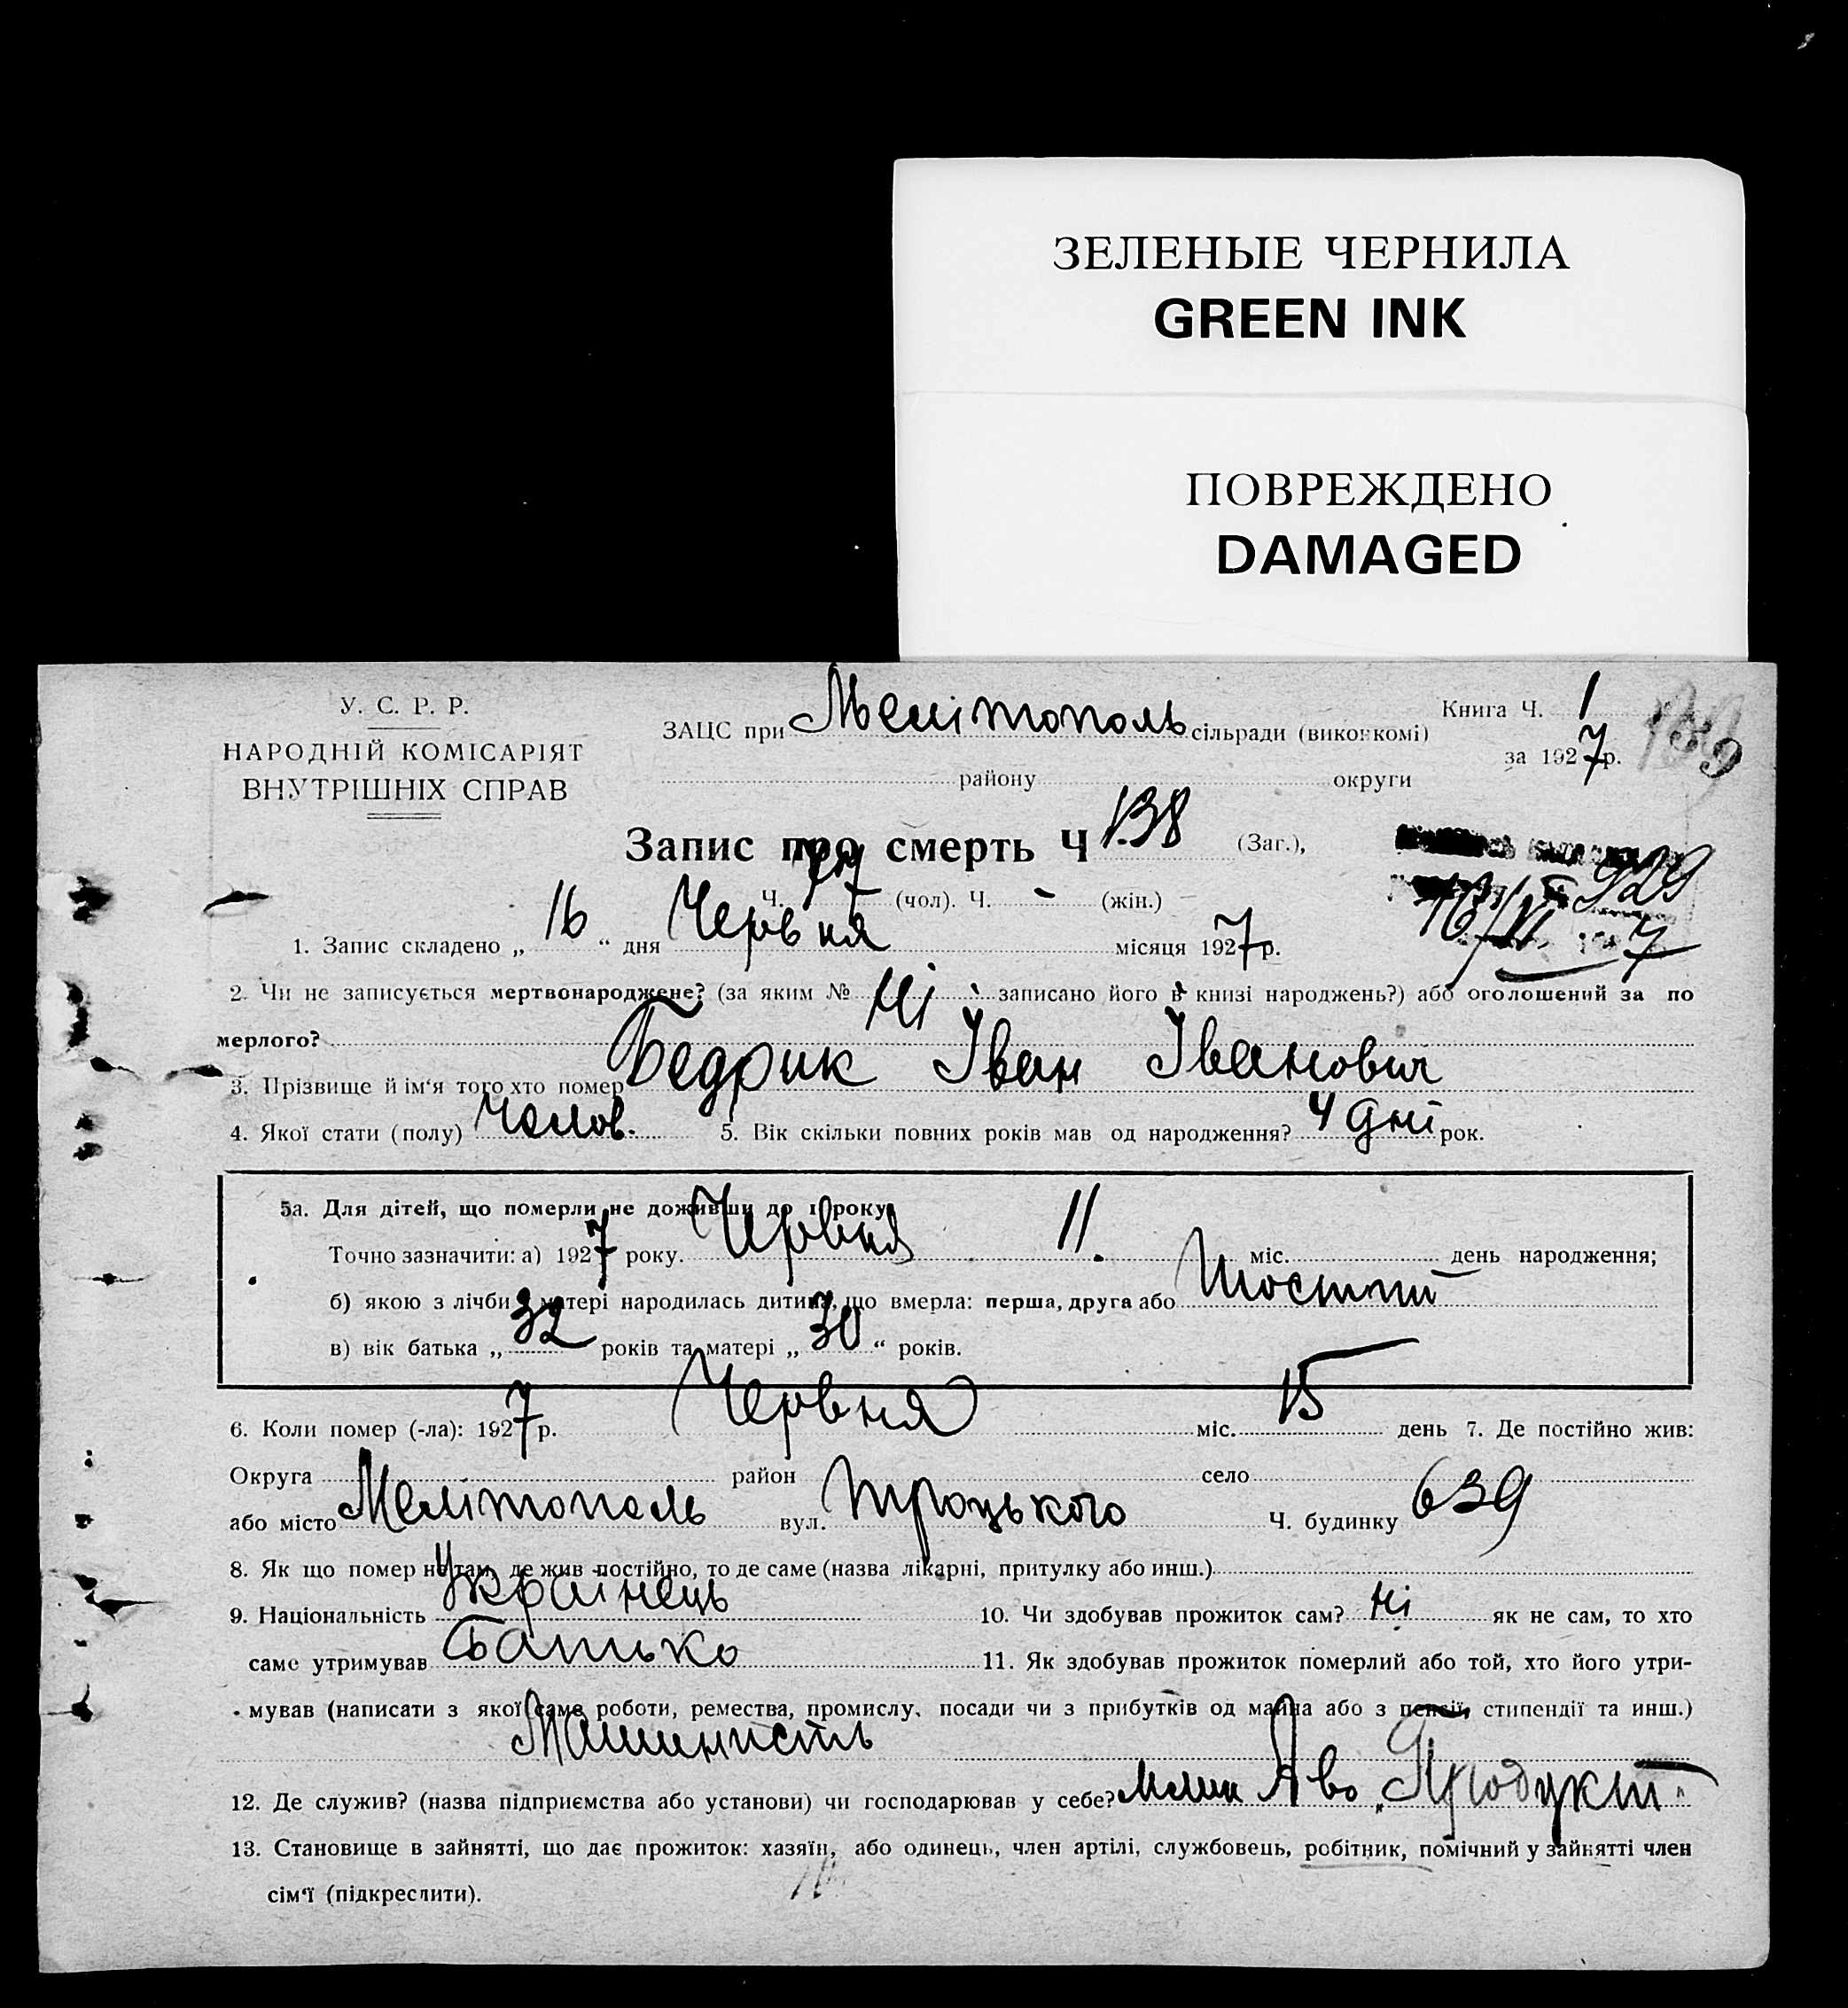 ЗЕЛЕНЫЕ ЧЕРНИЛА
GREEN INK
ПОВРЕЖДЕНО
DAMAGED
У. С. Р. Р.
НАРОДНІЙ КОМІСАРІЯТ
ВНУТРІШНІХ СПРАВ
ЗАЦС при Мелітополь сільради (виконкомі)
району округи
Книга Ч. 1
за 1927 р.
Запис про смерть Ч 138 (Заг.),
Ч. 77 (чол). Ч. - (жін.)
1. Запис складено „ 16 “ дня Червня місяця 1927 р.
2. Чи не записується мертвонароджене? (за яким № Ні записано його в книзі народжень?) або оголошений за по
мерлого?
3. Прізвище й ім‘я того хто помер Бедрик Іван Іванович
4. Якої стати (полу) Чолов. 5. Вік скільки повних років мав од народження? 4 дні рок.
5а. Для дітей, що померли не доживши до 1 року
Точно зазначити: а) 1927 року. Червня 11. міс. день народження;
б) якою з лічби матері народилась дитина, що вмерла: перша, друга або Шостий
в) вік батька „ 32 років та матері „ 30 “ років.
6. Коли помер (-ла): 1927 р. Червня міс. 15 день 7. Де постійно жив:
Округа район село
або місто Мелітополь вул. Троцького Ч. будинку 639
8. Як що помер не там, де жив постійно, то де саме (назва лікарні, притулку або инш.)
9. Національність Українець 10. Чи здобував прожиток сам? Ні як не сам, то хто
саме утримував Батько 11. Як здобував прожиток померлий або той, хто його утри-
мував (написати з якої саме роботи, ремества, промислу, посади чи з прибутків од майна або з пенсії, стипендії та инш.)
Машиність
12. Де служив? (назва підприємства або установи) чи господарював у себе? „Продукт“
13. Становище в зайнятті, що дає прожиток: хазяїн, або одинець, член артілі, службовець, робітник, помічний у зайнятті член
сім‘ї (підкреслити).